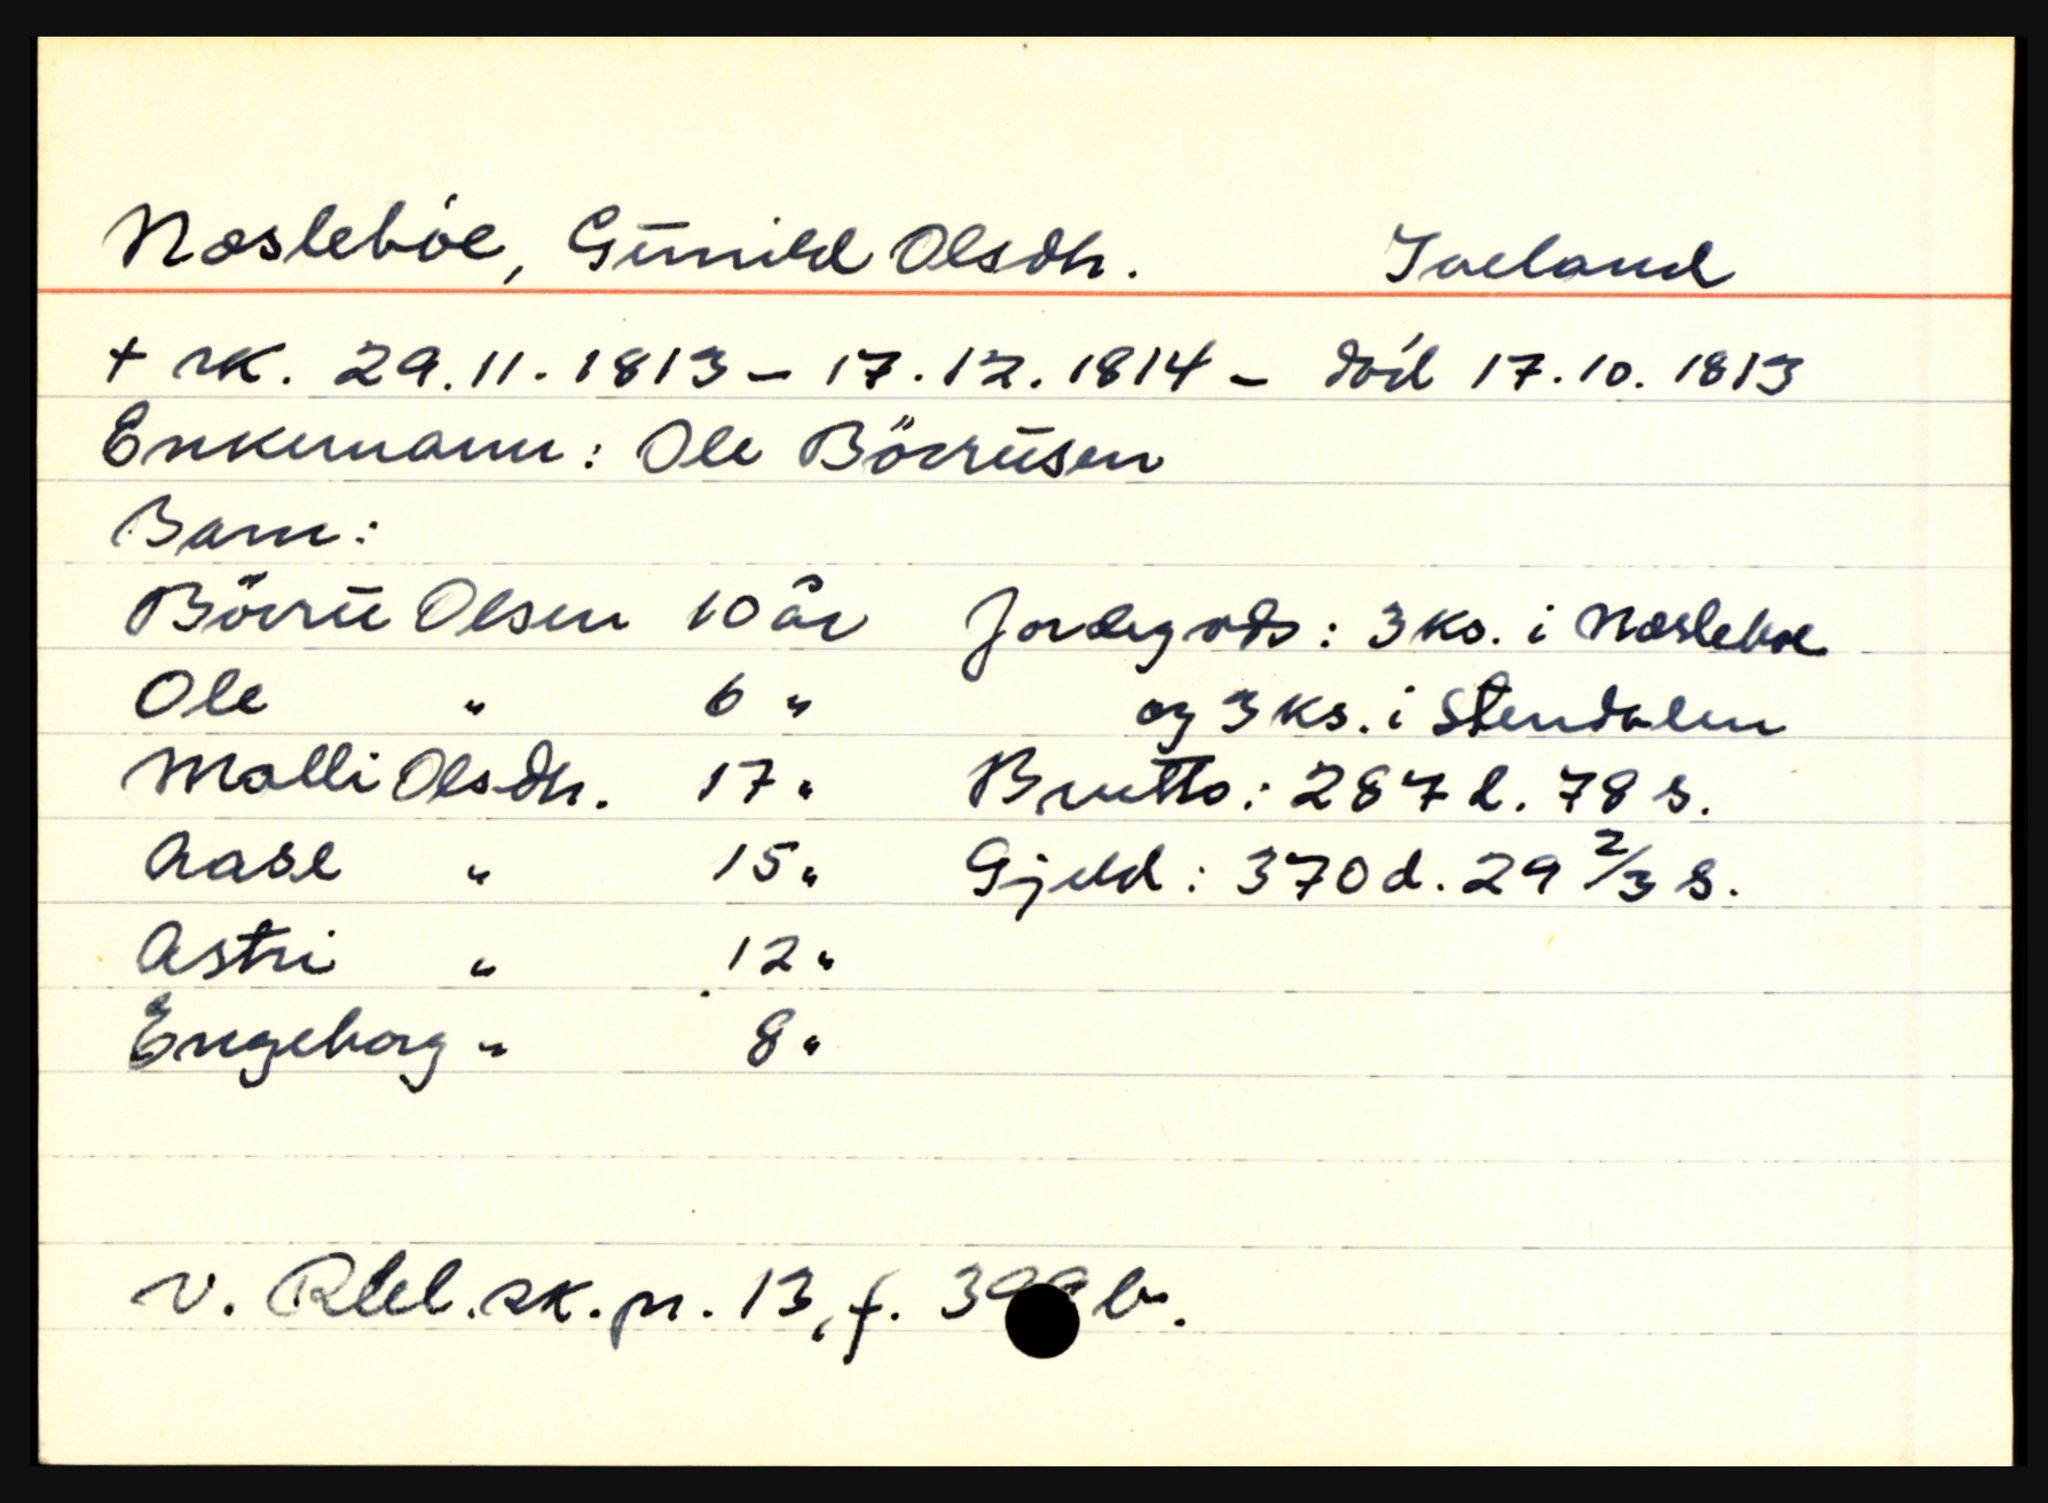 Næslebøe, Gunild Olsdtr. Iveland
+ sk. 29.11.1813 – 17.12.1814 – død 17.10.1813
Enkemann: Ole Börrusen
Barn:
Börru Olsen 10 år Jordegods: 3 ks. i Næsleboe
Ole " 6 " og 3 ks. i Stendalen
Malli Olsdtr. 17 " Brutto: 287 d. 78 s.
Aase " 15 " Gjeld: 370 d. 29 2/3 s.
Astri " 12 "
Engeborg " 8 "
v. Rbel. sk. pr. 13, f. b.